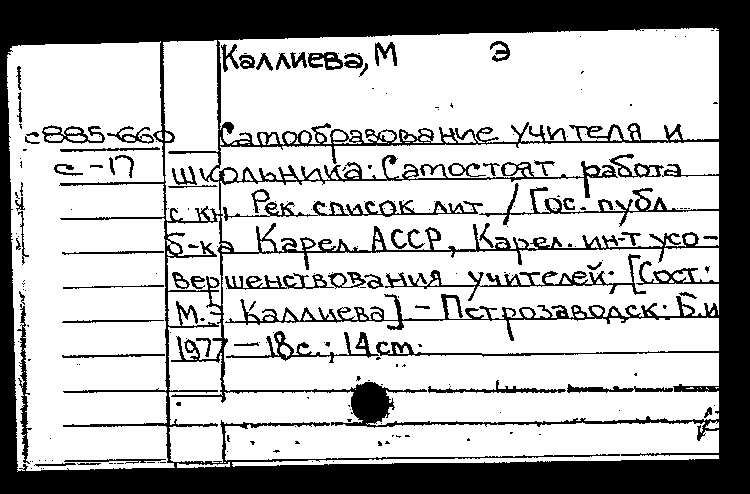 Каллиева, М Э
с885-660 Самообразование учителя и
с-17 школьника: Самостоят. работа
с кн. Рек. список лит. / Гос. публ.
б-ка Карел. АССР, Карел. ин-т усо-
вершенствования учителей; [Сост.:
М.Э. Каллиева] - Петрозаводск: Б.и
1977 - 18с.; 14 cm.